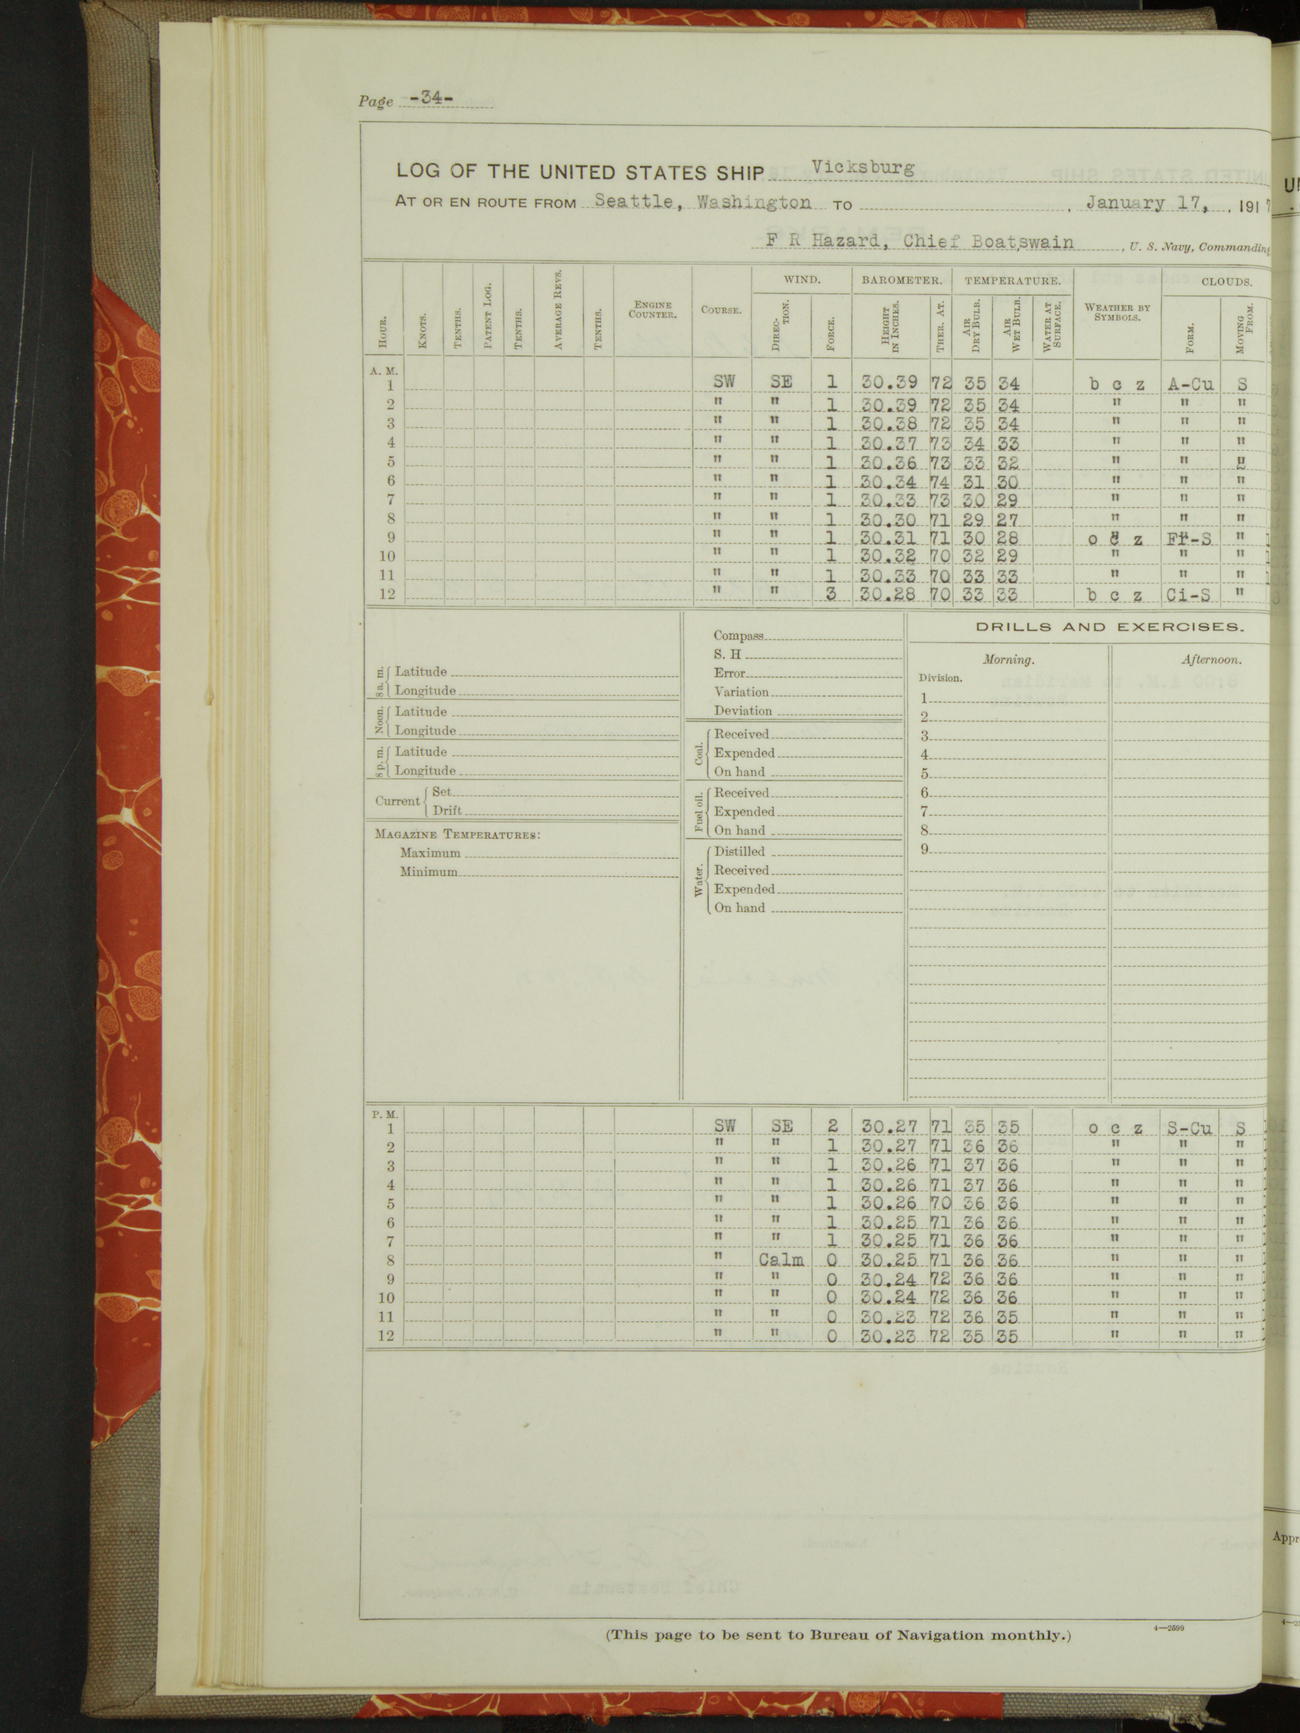 Page -34-
LOG OF THE UNITED STATES SHIP Vicksburg
AT OR EN ROUTE FROM Seattle, Washington TO , January 17, , 1917
F R Hazard, Chief Boatswain , U. S. Navy, Commanding
HOUR. KNOTS. TENTHS. PATENT LOG. TENTHS. AVERAGE REVS. TENTHS. ENGINE COUNTER. COURSE. WIND. DIRECTION. FORCE. BAROMETER. HEIGHT IN INCHES. THER. AT. TEMPERATURE. AIR DRY BULB. AIR WET BULB. WATER AT SURFACE. WEATHER BY SYMBOLS. CLOUDS. FORM. MOVING FROM.
A. M.
1 SW SE 1 30.39 72 35 34 b c z A-Cu S
2 " " 1 30.39 72 35 34 " " "
3 " " 1 30.38 72 35 34 " " "
4 " " 1 30.37 73 34 33 " " "
5 " " 1 30.36 73 33 32 " " "
6 " " 1 30.34 74 31 30 " " "
7 " " 1 30.33 73 30 29 " " "
8 " " 1 30.30 71 29 27 " " "
9 " " 1 30.31 71 30 28 o c z Fr-S "
10 " " 1 30.32 70 32 29 " " "
11 " " 1 30.33 70 33 33 " " "
12 " " 3 30.28 70 33 33 b c z Ci-S "
8 a. m. Latitude
Longitude
Noon. Latitude
Longitude
8 p. m. Latitude
Longitude
Current Set
Drift
MAGAZINE TEMPERATURES:
Maximum
Minimum
Compass
S. H
Error
Variation
Deviation
Coal. Received
Expended
On hand
Fuel oil. Received
Expended
On hand
Water. Distilled
Received
Expended
On hand
DRILLS AND EXERCISES.
Morning. Afternoon.
Division.
1
2
3
4
5
6
7
8
9
P. M.
1 SW SE 2 30.27 71 35 35 o c z S-Cu S
2 " " 1 30.27 71 36 36 " " "
3 " " 1 30.26 71 37 36 " " "
4 " " 1 30.26 71 37 36 " " "
5 " " 1 30.26 70 36 36 " " "
6 " " 1 30.25 71 36 36 " " "
7 " " 1 30.25 71 36 36 " " "
8 " Calm 0 30.25 71 36 36 " " "
9 " " 0 30.24 72 36 36 " " "
10 " " 0 30.24 72 36 36 " " "
11 " " 0 30.23 72 36 35 " " "
12 " " 0 30.23 72 35 35 " " "
(This page to be sent to Bureau of Navigation monthly.) 4—2599
Appr